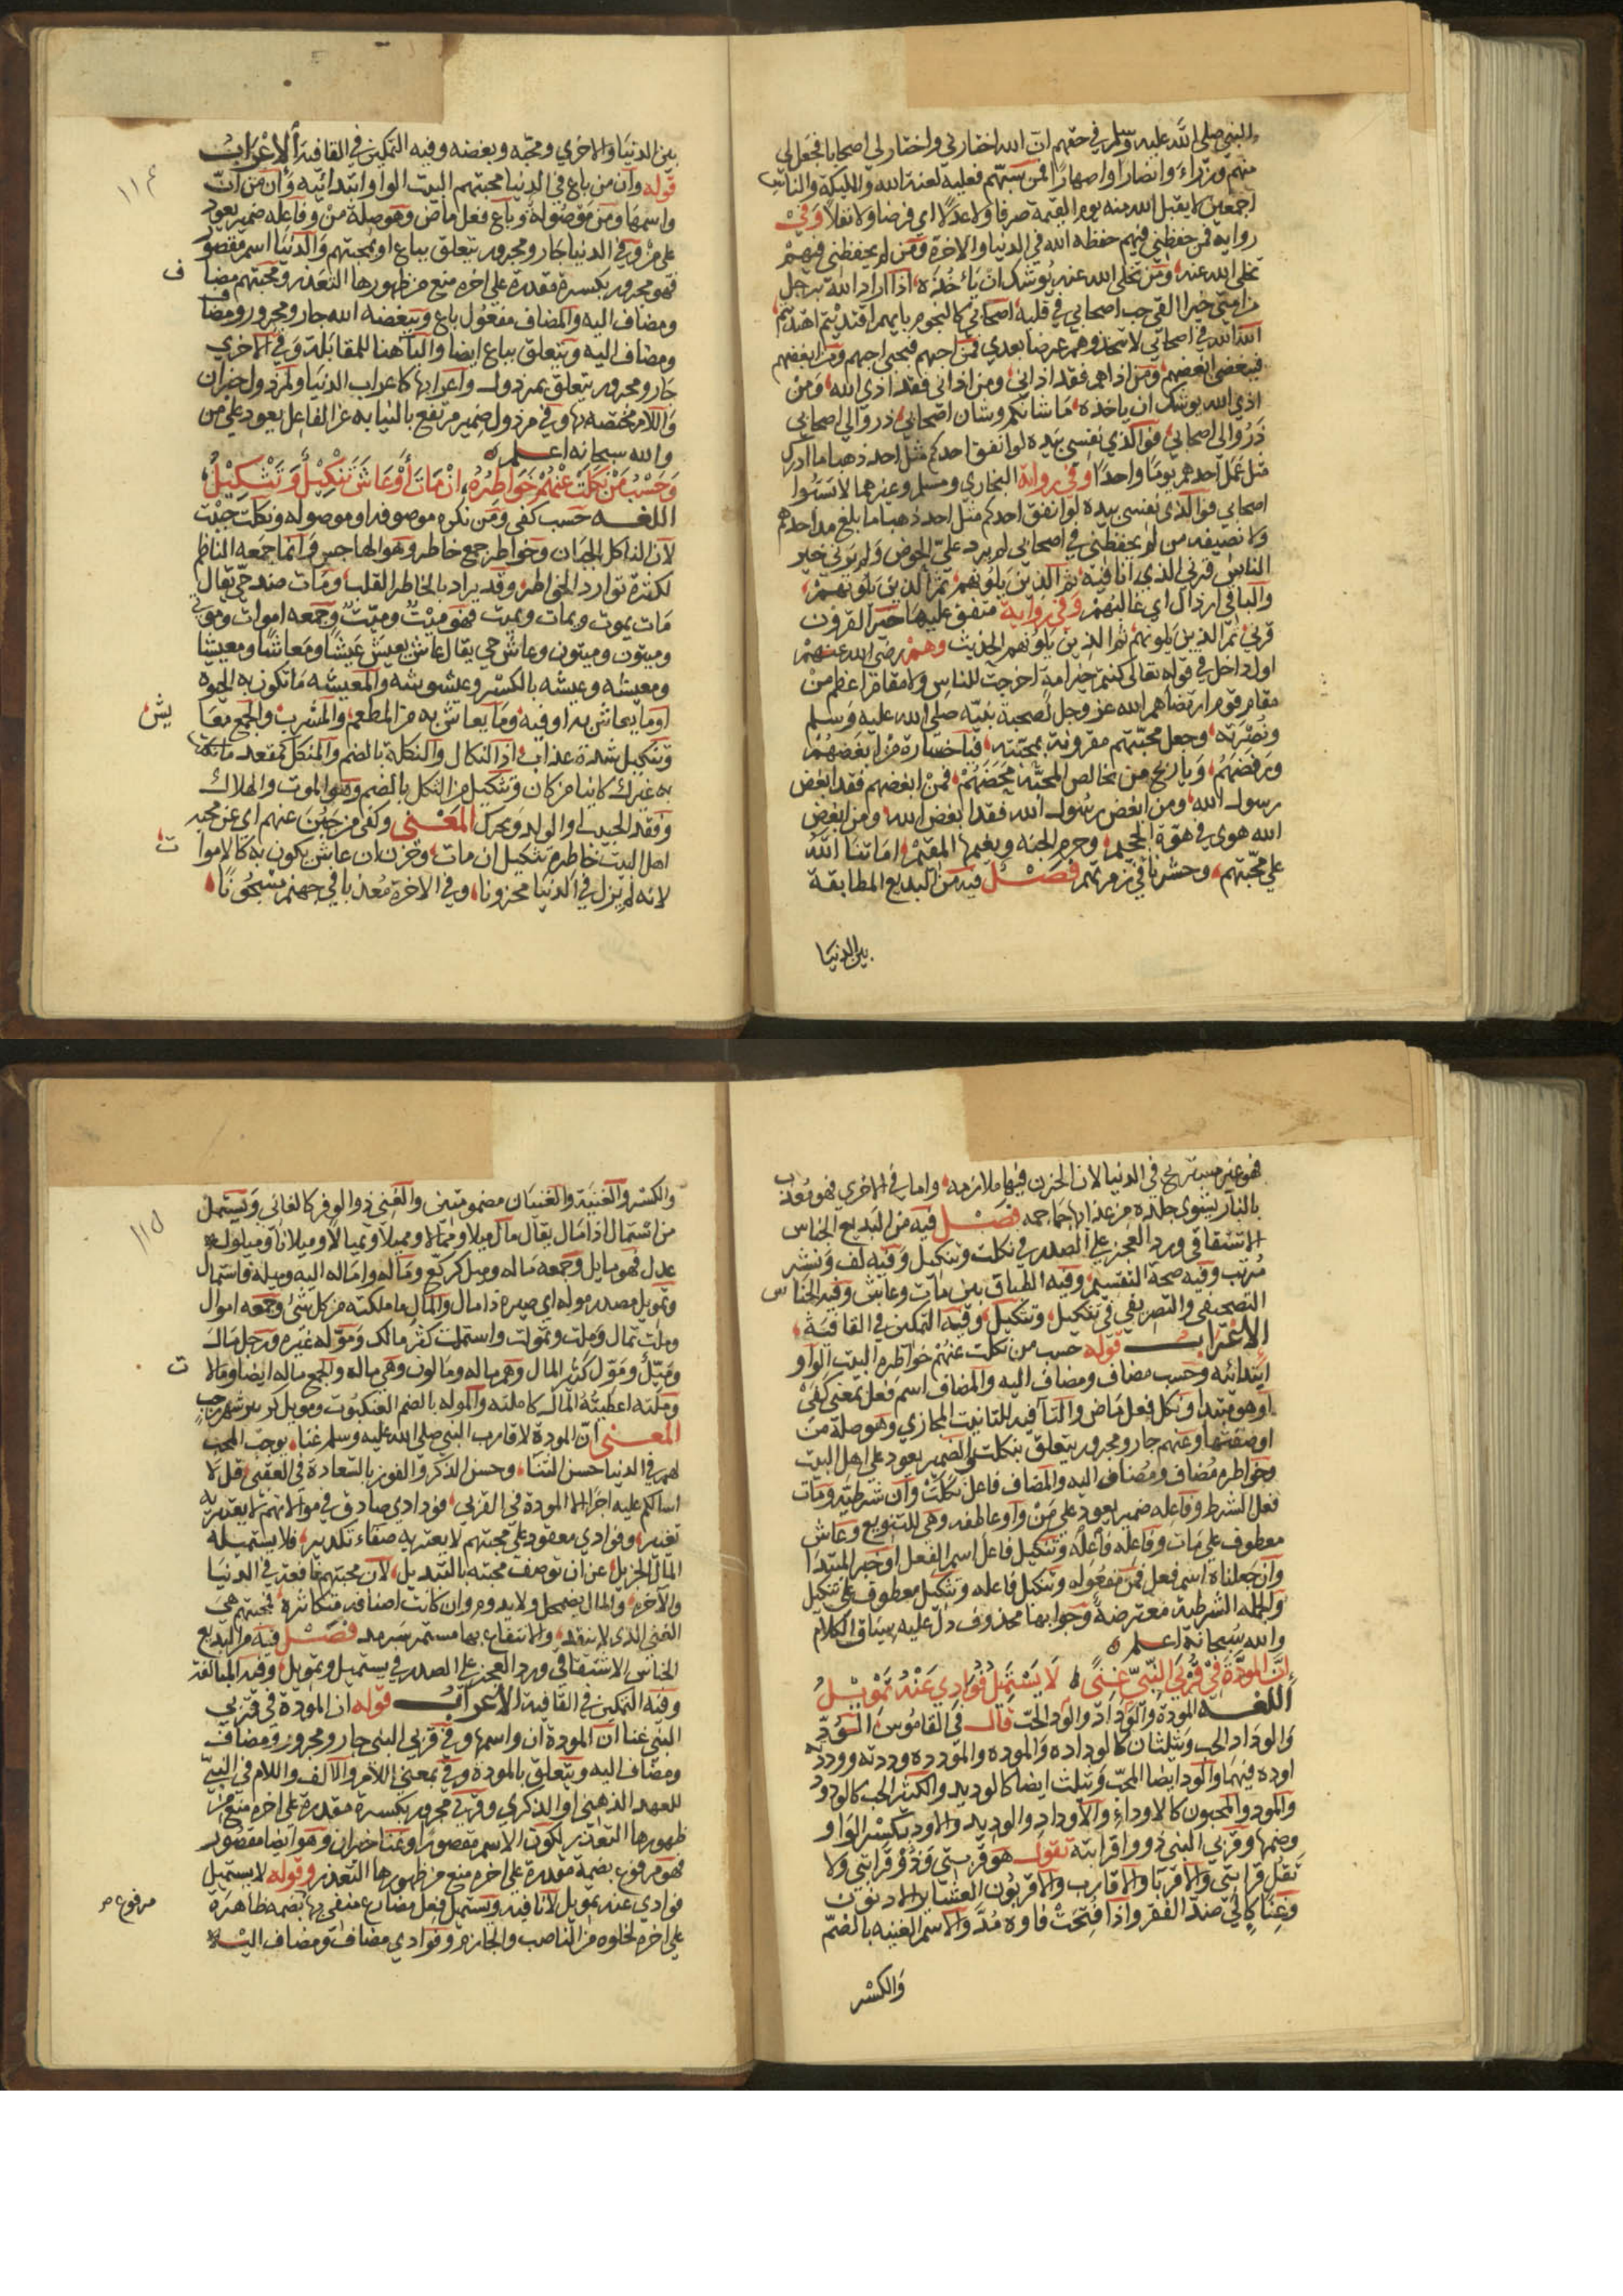 النبي صلى الله عليه وسلم في حقهم ان الله اختارني واختار لي اصحابا فجعل لي
منهم وزراء وانصارا واصهارا فمن سبهم فعليه لعنة الله والملائكة والناس
اجمعين لا يقبل الله منه يوم القيمة صرفا ولا عدلا اي فرضا ولا نفلا وفي
رواية فمن حفظني فيهم حفظه الله في الدنيا والاخرة ومن لم يحفظني فيهم
تخلى الله عنه ومن تخلى الله عنه يوشك ان يأخذه اذا اراد الله برجل
من امتي خيرا القى حب اصحابي في قلبه اصحابي كالنجوم بايهم اقتديتم اهتديتم
الله الله في اصحابي لا تتخذوهم غرضا بعدي فمن احبهم فبحبي احبهم ومن ابغضهم
فببغضي ابغضهم ومن اذاهم فقد اذاني ومن اذاني فقد اذى الله ومن
اذى الله يوشك ان ياخذه ما شانكم وشان اصحابي ذروا لي اصحابي
ذروا لي اصحابي فوالذي نفسي بيده لو انفق احدكم مثل احد ذهبا ما ادرك
مثل عمل احدهم يوما واحدا وفي رواية البخاري ومسلم وغيرهما لا تسبوا
اصحابي فوالذي نفسي بيده لو انفق احدكم مثل احد ذهبا ما بلغ مد احدهم
ولا نصيفه من لم يحفظني في اصحابي لم يرد علي الحوض ولم يرني خير
الناس قرني الذي انا فيه ثم الذين يلونهم ثم الذين يلونهم
والباقي ارذال اي غالبهم وفي رواية متفق عليها خير القرون
قرني ثم الذين يلونهم ثم الذين يلونهم الحديث وهم رضى الله عنهم
اول داخل في قوله تعالى كنتم خير امة اخرجت للناس ولا مقام اعظم من
مقام قوم ارتضاهم الله عز وجل لصحبة نبيه صلى الله عليه وسلم
ونصرته وجعل محبتهم مقرونة بمحبته فيا خسارة من ابغضهم
ورفضهم ويا ربح من بخالص المحبة محضهم فمن ابغضهم فقد ابغض
رسول الله ومن ابغض رسول الله فقد ابغض الله ومن ابغض
الله هوى في هوة الجحيم وحرم الجنة ونعيمها المقيم اماتنا الله
على محبتهم وحشرنا في زمرتهم فصل فيه من البديع المطابقة
بين الدنيا
بين الدنيا والاخرى ومحبه وبغضه وفيه التمكين في القافية الاعراب
قوله وان من باع في الدنيا محبتهم البيت الواو ابتدائية وان من ان
واسمها ومن موصوله وباع فعل ماض وهو صلة من وفاعله ضمير يعود
على من وفي الدنيا جار ومجرور يتعلق بباع او بمحبتهم والدنيا اسم مقصور
فهو مجرور بكسرة مقدرة على اخره منع من ظهورها التعذر ومحبتهم مضاف
ومضاف اليه والمضاف مفعول باع وببغضه الله جار ومجرور ومضاف
ومضاف اليه ويتعلق بباع ايضا والبآ هنا للمقابلة وفي الاخرى
جار ومجرور يتعلق بمرذول واعرابها كاعراب الدنيا ولمرذول خبر ان
واللام مختصه بها وفي مرذول ضمير مرتفع بالنيابه عن الفاعل يعود على من
والله سبحانه اعلم
وحسب من نكلت عنهم خواطره ان مات او عاش تنكيل وتثكيل
اللغه حسب كفى ومن نكره موصوفه او موصوله ونكلت جبنت
لان الناكل الجبان وخواطر جمع خاطر وهو الهاجس وانما جمعه الناظم
لكثرة توارد الخواطر وقد يراد بالخاطر القلب ومات ضد حي يقال
مات يموت ويمات ويميت فهو ميت وميت وجمعه اموات وموتى
وميتون وميتون وعاش حي يقال عاش يعيش عيشا ومعاشا ومعيشا
ومعيشه وعيشه بالكسر وعيشوشه والمعيشه ما تكون به الحيوه
او ما يعاش به او فيه وما يعاش به من المطعم والمشرب والجمع معايش
وتنكيل شدة عذاب اذ النكال والنكلة بالضم والمنكل كمقعد ما نكلت
به غيرك كاينا من كان وتثكيل من الثكل بالضم وهو الموت والهلاك
وفقد الحبيب او الولد ويحرك المعنى وكفى من جبن عنهم اي عن محبة
اهل البيت خاطره تثكيل ان مات وحزن ان عاش يكون به كالاموات
لانه لم يزل في الدنيا محزونا وفي الاخرة معذبا في جهنم مسجونا
١١٤
فهو غير مستريح في الدنيا لان الحزن فيها ملازمه واما في الاخرى فهو معذب
بالنار يشوى جلده من عذابها حماحمه فصل فيه من البديع الجناس
الاشتقاقي ورد العجز على الصدر في نكلت وتنكيل وفيه لف ونشر
مرتب وفيه صحة التقسيم وفيه الطباق بين مات وعاش وفيه الجناس
التصحيفي والتصريفي في تنكيل وتثكيل وفيه التمكين في القافية
الاعراب قوله حسب من نكلت عنهم خواطره البيت الواو
ابتدائيه وحسب مضاف ومضاف اليه والمضاف اسم فعل بمعنى كفى
او هو مبتدا ونكل فعل ماض والتا فيه للتانيث المجازي وهو صلة من
او صفتها وعنهم جار ومجرور يتعلق بنكلت والضمير يعود على اهل البيت
وخواطره مضاف ومضاف اليه والمضاف فاعل نكلت وان شرطيه ومات
فعل الشرط وفاعله ضمير يعود على من واو عاطفه وهي للتنويع وعاش
معطوف على مات وفاعله فاعله وتنكيل فاعل اسم الفعل او خبر المبتدا
وان جعلناه اسم فعل فمن مفعوله وتنكيل فاعله وتثكيل معطوف على تنكيل
والجمله الشرطية معترضة وجوابها محذوف دل عليه سياق الكلام
والله سبحانه اعلم
ان المودة في قربى النبي غنى لا يستميل فؤادي عنه تمويل
اللغه المودة والوداد والود الحب قال في القاموس الود
والوداد الحب ويثلثان كالوداده والموده والمودده ووددته ووددته
اوده فيهما والود ايضا المحب ويثلث ايضا كالوديد والكثير الحب كالودود
والمود والمحبون كالاوداء والاوداد والوديد والاود بكسر الواو
وضمها وقربى النبي ذوو اقرابته تقول هو قريبتي وذو قرابتي ولا
تقل قرابتي والاقربا والاقارب والاقربون العشاير الادنون
وغنا كالى ضد الفقر واذا فتحت فاوه مد والاسم الغنيه بالضم
والكسر
والكسر والغنية والغنيان مضمومتين والغني ذو الوفر كالغاني ويستميل
من استمال اذا مال يقال مال ميلا وممالا ومميلا وتميالا وميلانا وميلوله
عدل فهو مايل وجمعه ماله وميل كركع وماله واماله اليه وميله فاستمال
وتمويل مصدر موله اي صيره ذا مال والمال ما ملكته من كل شئ وجمعه اموال
وملت تمال وملت وتمولت واستملت كثر مالك وموله غيره ورجل مال
وميل ومول كثير المال وهم ماله ومالون وهي ماله والجمع ماله ايضا ومالات
وملته اعطيته المال كاملته والموله بالضم العنكبوت ومويل كزبير شهر رجب
المعنى ان المودة لاقارب النبي صلى الله عليه وسلم غنا يوجب المحب
لهم في الدنيا حسن الثنا وحسن الذكر والفوز بالسعادة في العقبى قل لا
اسالكم عليه اجرا الا المودة في القربى فؤادي صادق في موالاتهم لا يعتريه
تغيير وفوادي معقود على محبتهم لا يعتريه صفاء تكدير فلا يستميله
المال الجزيل عن ان توصف محبته بالتبديل لان محبتهم نافعة في الدنيا
والآخره والمال يضمحل ولا يدوم وان كانت اصنافه متكاثرة فمحبتهم هي
الغنى الذي لا ينفد والانتفاع بها مستمر سرمد فصل فيه من البديع
الجناس الاشتقاقي ورد العجز على الصدر في يستميل وتمويل وفيه المبالغة
وفيه التمكين في القافية الاعراب قوله ان المودة في قربى
النبي غنا ان المودة ان واسمها وفي قربى النبي جار ومجرور ومضاف
ومضاف اليه ويتعلق بالمودة وفي بمعنى اللام والالف واللام في النبي
للعهد الذهني او الذكري وقربى مجرور بكسرة مقدرة على اخره منع من
ظهورها التعذر لكون الاسم مقصورا وغنا خبر ان وهو ايضا مقصور
فهو مرفوع بضمة مقدرة على اخره منع من ظهورها التعذر وقوله لا يستميل
فوادي عنه تمويل لا نافيه ويستميل فعل مضارع منفي بها بضمه ظاهرة
على اخره لخلوه من الناصب والجازم وفوادي مضاف ومضاف اليه
مرفوع ص
١١٥